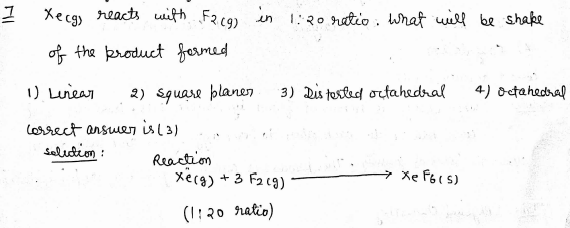 I Xe(g) reacts with F2(g) in 1:20 ratio. What will be shape
of the product formed
1) Linear 2) square planer 3) Distorted octahedral 4) octahedral
correct answer is (3)
solution :
Reaction
Xe(g) + 3 F2(g) → XeF6(s)
(1:20 ratio)